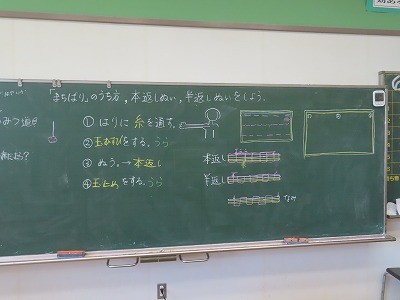 「まちばり」のうち方、本返しぬい、半返しぬいをしよう。
① はりに糸を通す。
② 玉むすびをする。うら
③ ぬう。→本返し
④ 玉どめをする。うら
本返し
半返し
なみ